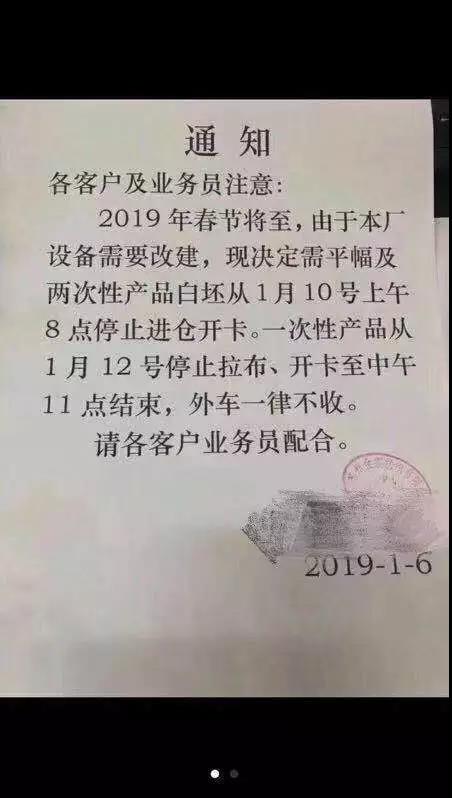 通知
各客户及业务员注意:
2019年春节将至,由于本厂
设备需要改建，现决定需平幅及
两次性产品白坯从1月10号上午
8点停止进仓开卡。一次性产品从
1月12号停止拉布、开卡至中午
11点结束，外车一律不收。
请各客户业务员配合。
2019-1-6